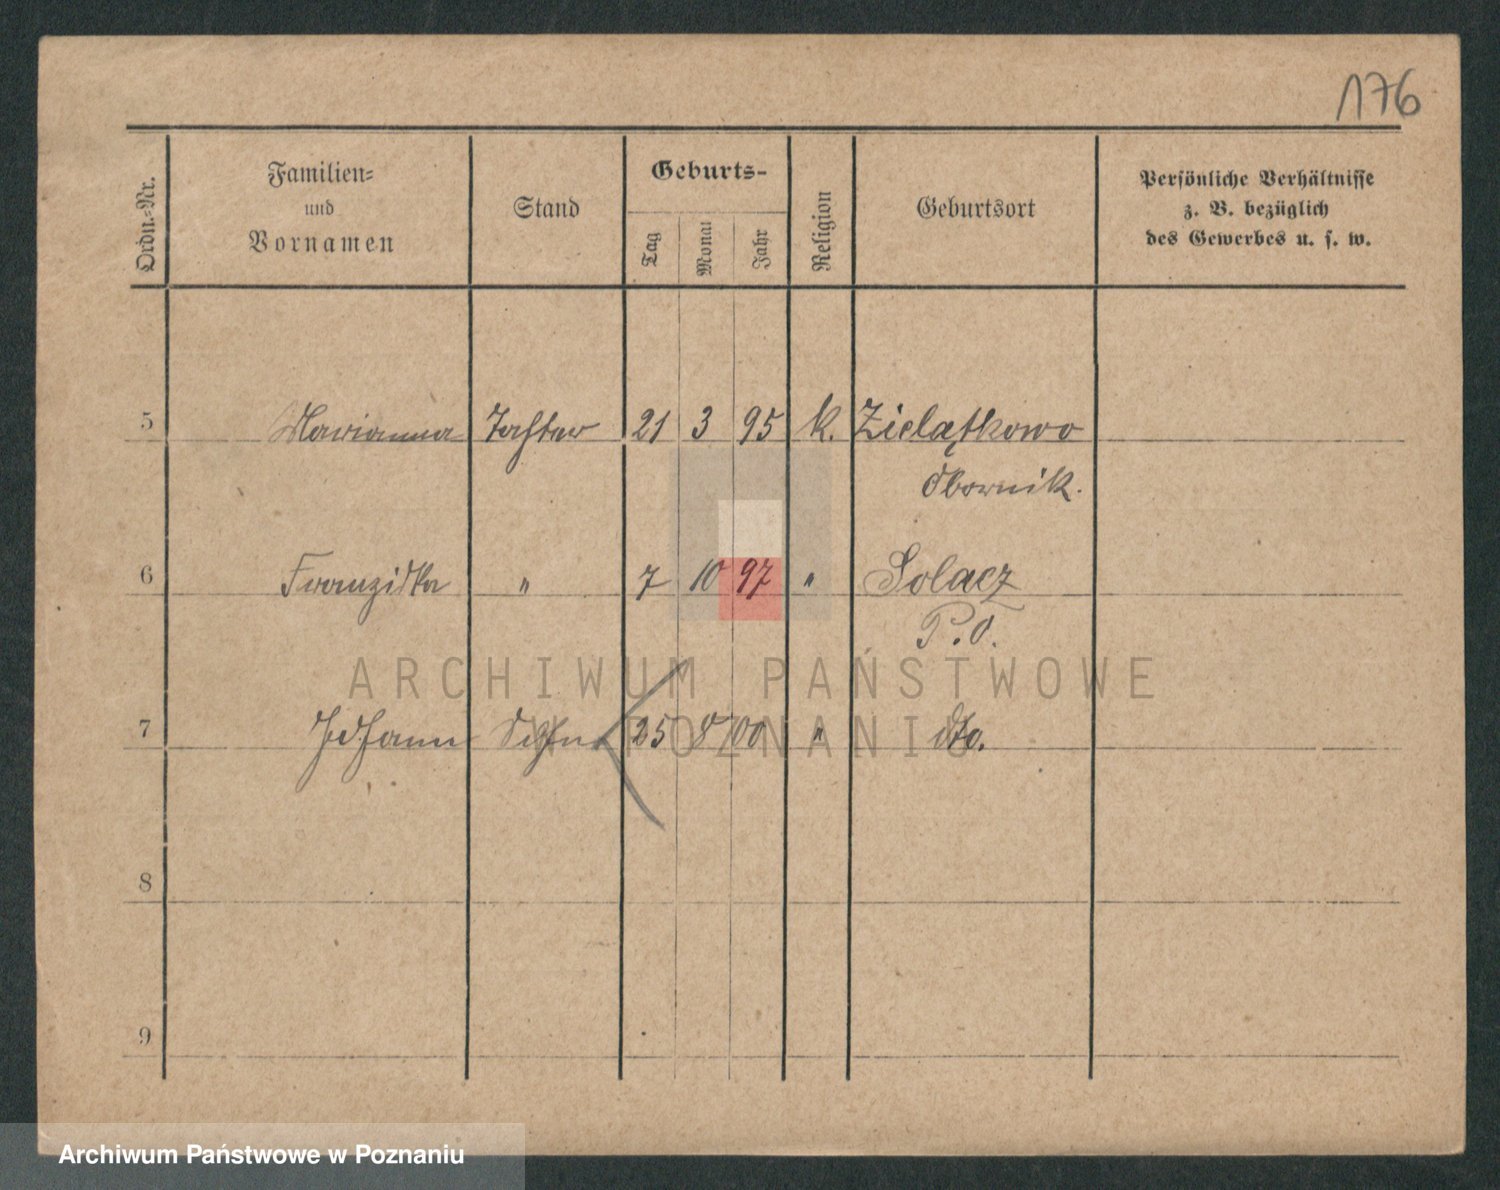 176
Ordn.-Nr.
Familien-
und
Vornamen
Stand
Geburts-
Tag
Monat
Jahr
Religion
Geburtsort
Persönliche Verhältnisse
z. B. bezüglich
des Gewerbes u. s. w.
5 Marianna Tochter 21 3 95 k. Zielątkowo
Obornik.
6 Franziska " 7 10 97 " Solacz
P. O.
ARCHIWUM PAŃSTWOWE
W POZNANIU
7 Johann Sohn 25 8 00 " dto.
8
9
Archiwum Państwowe w Poznaniu